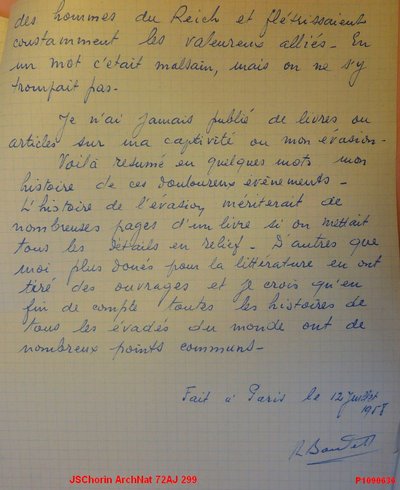 des hommes du Reich et flétrissaient
constamment les valeureux alliés - En
un mot c'était malsain, mais on ne s'y
trompait pas -
Je n'ai jamais publié de livres ou
articles sur ma captivité ou mon évasion -
Voilà résumé en quelques mots mon
histoire de ces douloureux evènements -
L'histoire de l'évasion, mériterait de
nombreuses pages d'un livre si on mettait
tous les détails en relief - D'autres que
moi plus doués pour la littérature en ont
tiré des ouvrages et je crois qu'en
fin de compte toutes les histoires de
tous les évadés du monde ont de
nombreux points communs -
Fait à Paris le 12 Juillet
1958
JSChorin ArchNat 72AJ 299
P1090630